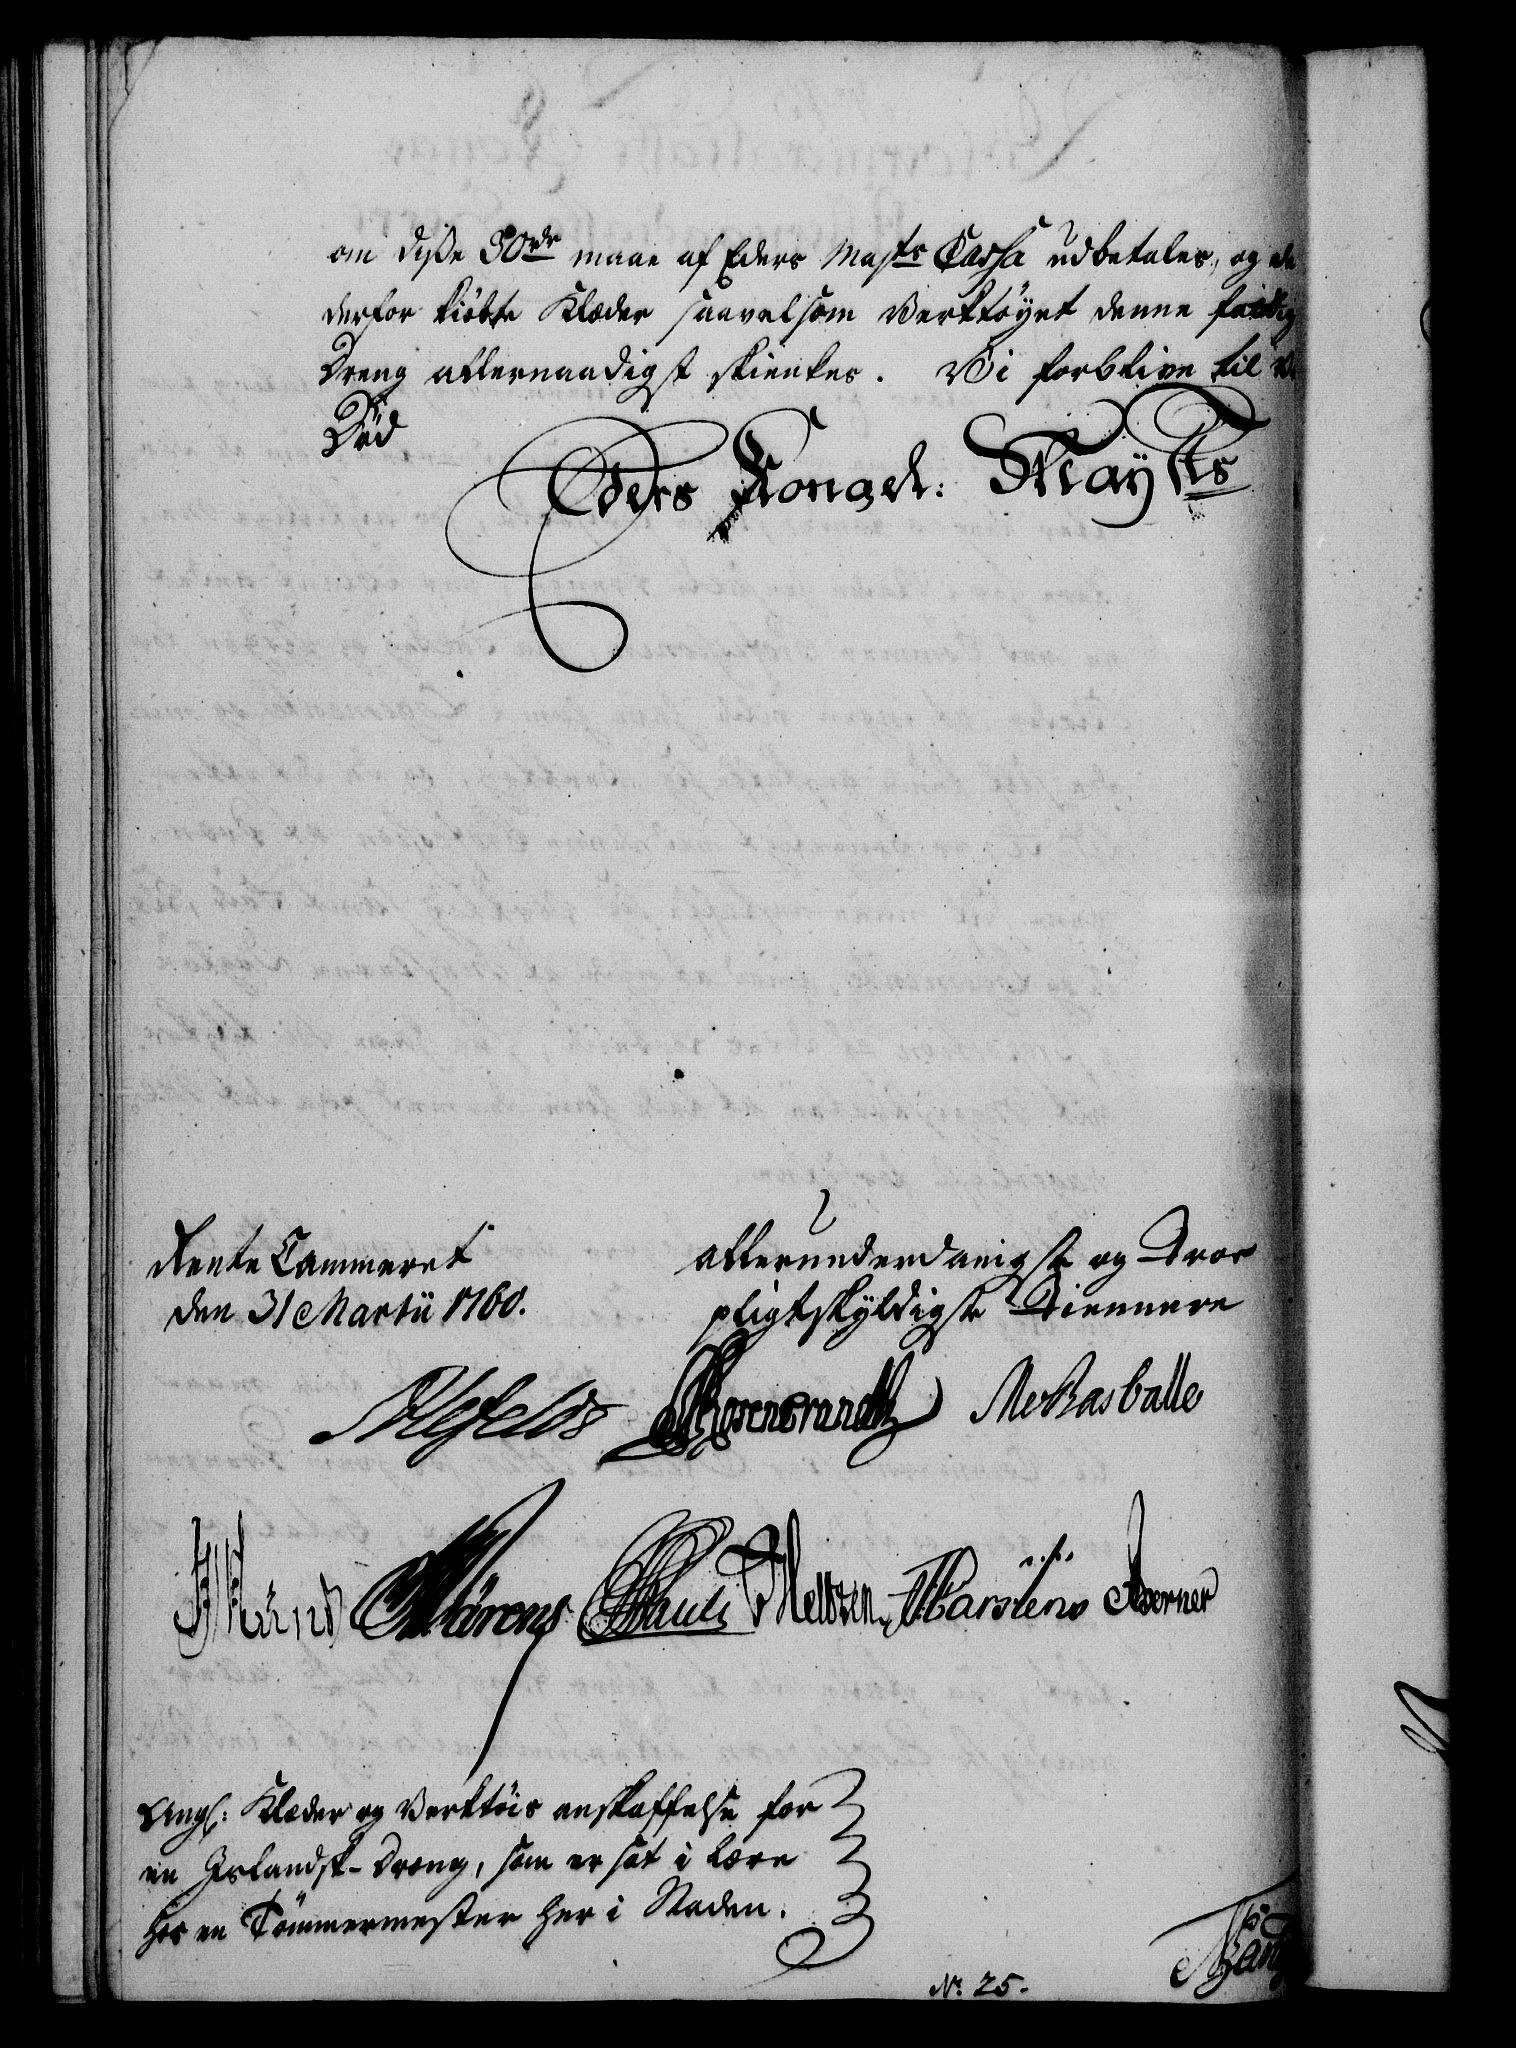 om disse 30rdr maae af Eders Maj:ts Cassa udbetales, og de
derfor kiöbte Klæder saavelsom Verktöyet denne fattig
Dreng allernaadigst skienkes. Vi forblive til v
Död
Eders Kongel: Mayts
Rente Cammeret
den 31 Martii 1760.
allerunderdanigst og Troe
pligtskyldigste Tiennere
Ahlefeldt Rosenkrandtz
Pauli Meltzen
Ang: Klæder og Verktöis anskaffelse for
en Islandsk-Dreng, som er sat i Lære
hos en Tömmermester her i Staden.
No 25.